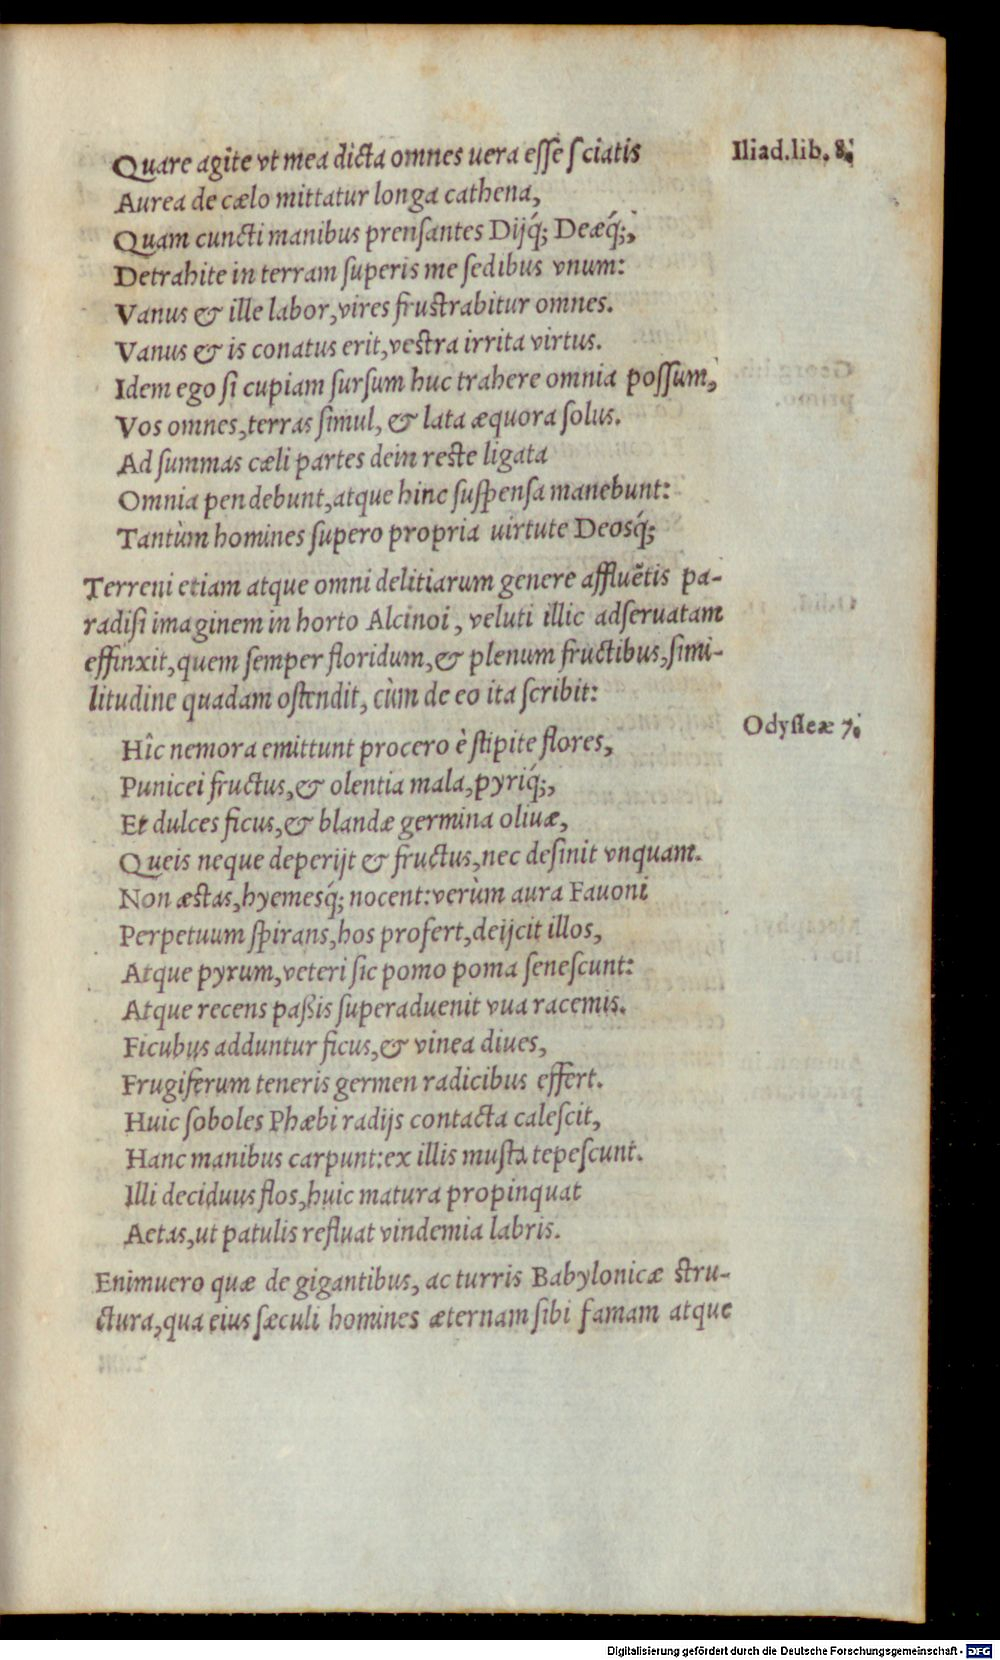 Quare agite vt mea dicta omnes uera esse sciatis
Iliad.lib. 8.
Aurea de cælo mittatur longa cathena,
Quam cuncti manibus prensantes Dijq́; Deæq́;,
Detrahite in terram superis me sedibus vnum:
Vanus & ille labor, vires frustrabitur omnes.
Vanus & is conatus erit, vestra irrita virtus.
Idem ego si cupiam sursum huc trahere omnia possum,
Vos omnes, terras simul, & lata æquora solus.
Ad summas cæli partes dein reste ligata
Omnia pendebunt, atque hinc suspensa manebunt:
Tantùm homines supero propria uirtute Deosq́;
Terreni etiam atque omni delitiarum genere affluẽtis pa-
radisi imaginem in horto Alcinoi, veluti illic adseruatam
effinxit, quem semper floridum, & plenum fructibus, simi-
litudine quadam ostendit, cùm de eo ita scribit:
Odysseæ 7.
Hîc nemora emittunt procero è stipite flores,
Punicei fructus, & olentia mala, pyriq́;,
Et dulces ficus, & blandæ germina oliuæ,
Queis neque deperijt & fructus, nec desinit vnquam.
Non æstas, hyemesq́; nocent: verùm aura Fauoni
Perpetuum spirans, hos profert, deijcit illos,
Atque pyrum, veteri sic pomo poma senescunt:
Atque recens paßis superaduenit vua racemis.
Ficubus adduntur ficus, & vinea diues,
Frugiferum teneris germen radicibus effert.
Huic soboles Phæbi radijs contacta calescit,
Hanc manibus carpunt: ex illis musta tepescunt.
Illi deciduus flos, huic matura propinquat
Aetas, ut patulis refluat vindemia labris.
Enimuero quæ de gigantibus, ac turris Babylonicæ stru-
ctura, qua eius sæculi homines æternam sibi famam atque
Digitalisierung gefördert durch die Deutsche Forschungsgemeinschaft - DFG